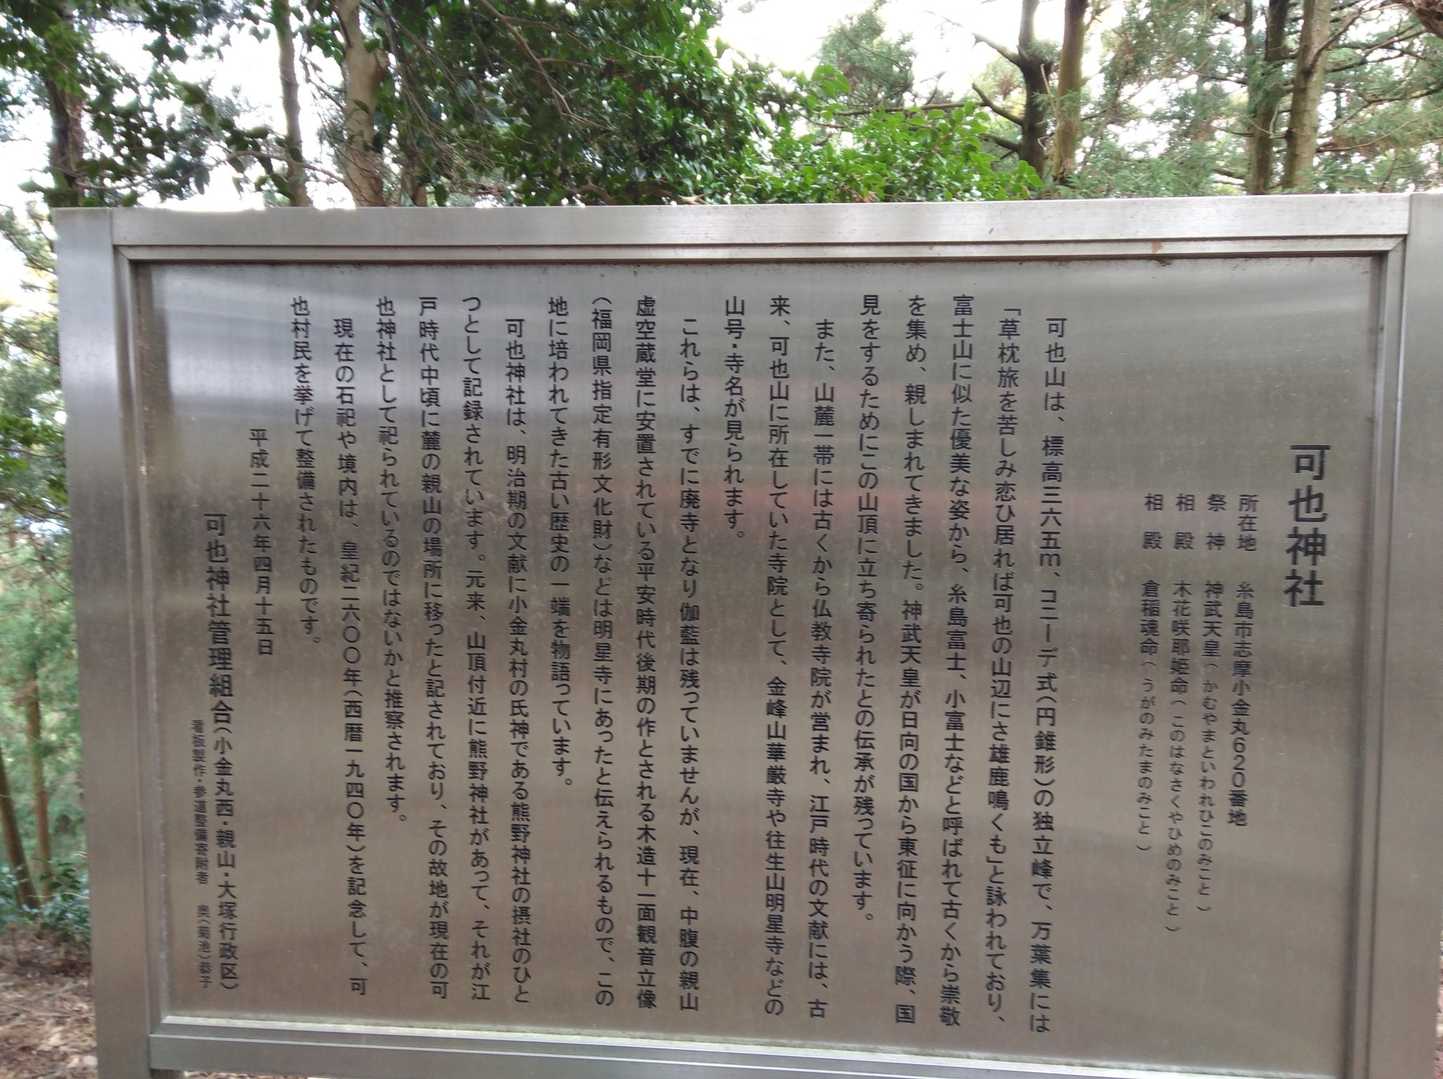 可也神社
所在地　糸島市志摩小金丸620番地
祭　神　神武天皇（かむやまといわれひこのみこと）
相　殿　木花咲耶姫命（このはなさくやひめのみこと）
相　殿　倉稲魂命（うがのみたまのみこと）
可也山は、標高三六五m、コニーデ式（円錐形）の独立峰で、万葉集には
「草枕旅を苦しみ恋ひ居れば可也の山辺にさ雄鹿鳴くも」と詠われており、
富士山に似た優美な姿から、糸島富士、小富士などと呼ばれて古くから崇敬
を集め、親しまれてきました。神武天皇が日向の国から東征に向かう際、国
見をするためにこの山頂に立ち寄られたとの伝承が残っています。
また、山麓一帯には古くから仏教寺院が営まれ、江戸時代の文献には、古
来、可也山に所在していた寺院として、金峰山華厳寺や往生山明星寺などの
山号・寺名が見られます。
これらは、すでに廃寺となり伽藍は残っていませんが、現在、中腹の親山
虚空蔵堂に安置されている平安時代後期の作とされる木造十一面観音立像
（福岡県指定有形文化財）などは明星寺にあったと伝えられるもので、この
地に培われてきた古い歴史の一端を物語っています。
可也神社は、明治期の文献に小金丸村の氏神である熊野神社の摂社のひと
つとして記録されています。元来、山頂付近に熊野神社があって、それが江
戸時代中頃に麓の親山の場所に移ったと記されており、その故地が現在の可
也神社として祀られているのではないかと推察されます。
現在の石祀や境内は、皇紀二六〇〇年（西暦一九四〇年）を記念して、可
也村民を挙げて整備されたものです。
平成二十六年四月十五日
可也神社管理組合（小金丸西・親山・大塚行政区）
看板製作・参道整備寄附者　奥（菊池）恭子